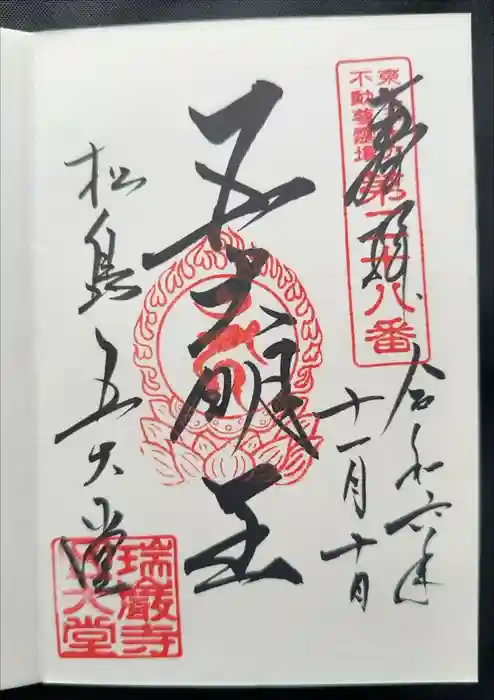 奉拝
不動尊靈場
第二十八番
令和六年
十一月十日
五大明王
松島 五大堂
瑞巖寺
五大堂